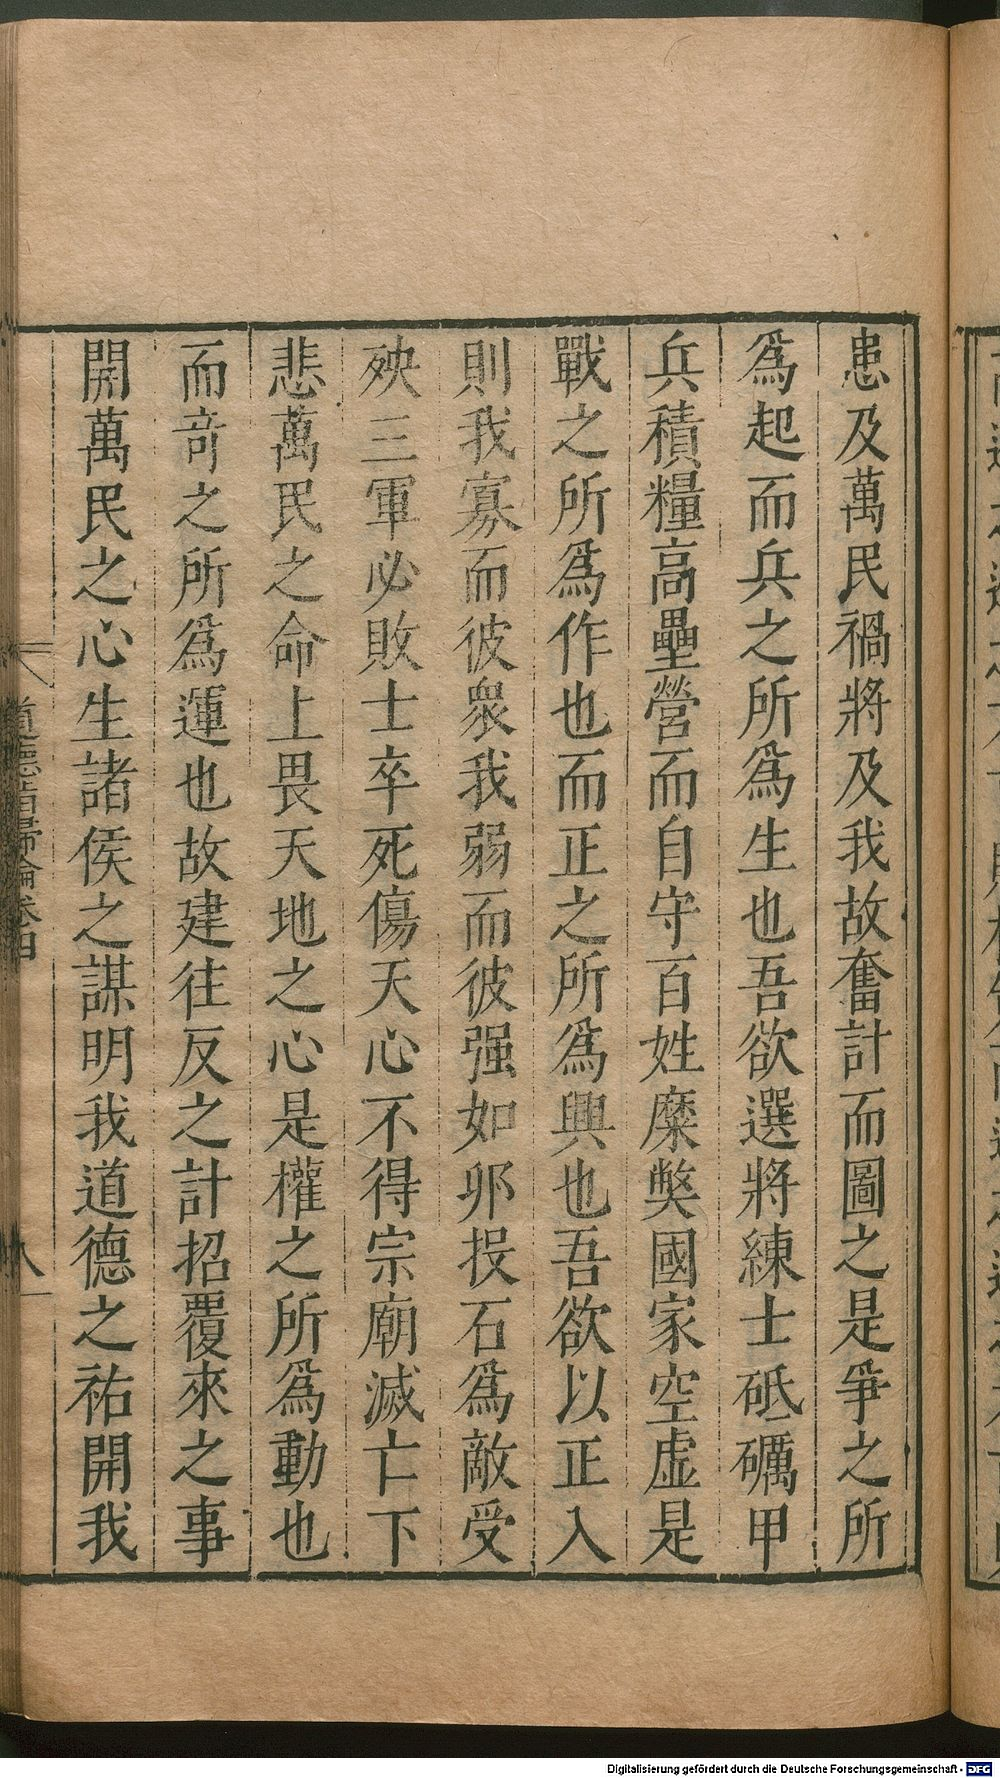 患及萬民禍將及我故奮計而圖之是爭之所
爲起而兵之所爲生也吾欲選將練士砥礪甲
兵積糧高壘營而自守百姓糜獘國家空虛是
戰之所爲作也而正之所爲興也吾欲以正入
則我寡而彼衆我弱而彼强如卵投石爲敵受
殃三軍必敗士卒死傷天心不得宗廟滅亡下
悲萬民之命上畏天地之心是權之所爲動也
而竒之所爲運也故建往反之計招覆來之事
開萬民之心生諸侯之謀明我道德之祐開我
道德指歸論卷四
八
Digitalisierung gefördert durch die Deutsche Forschungsgemeinschaft - DFG